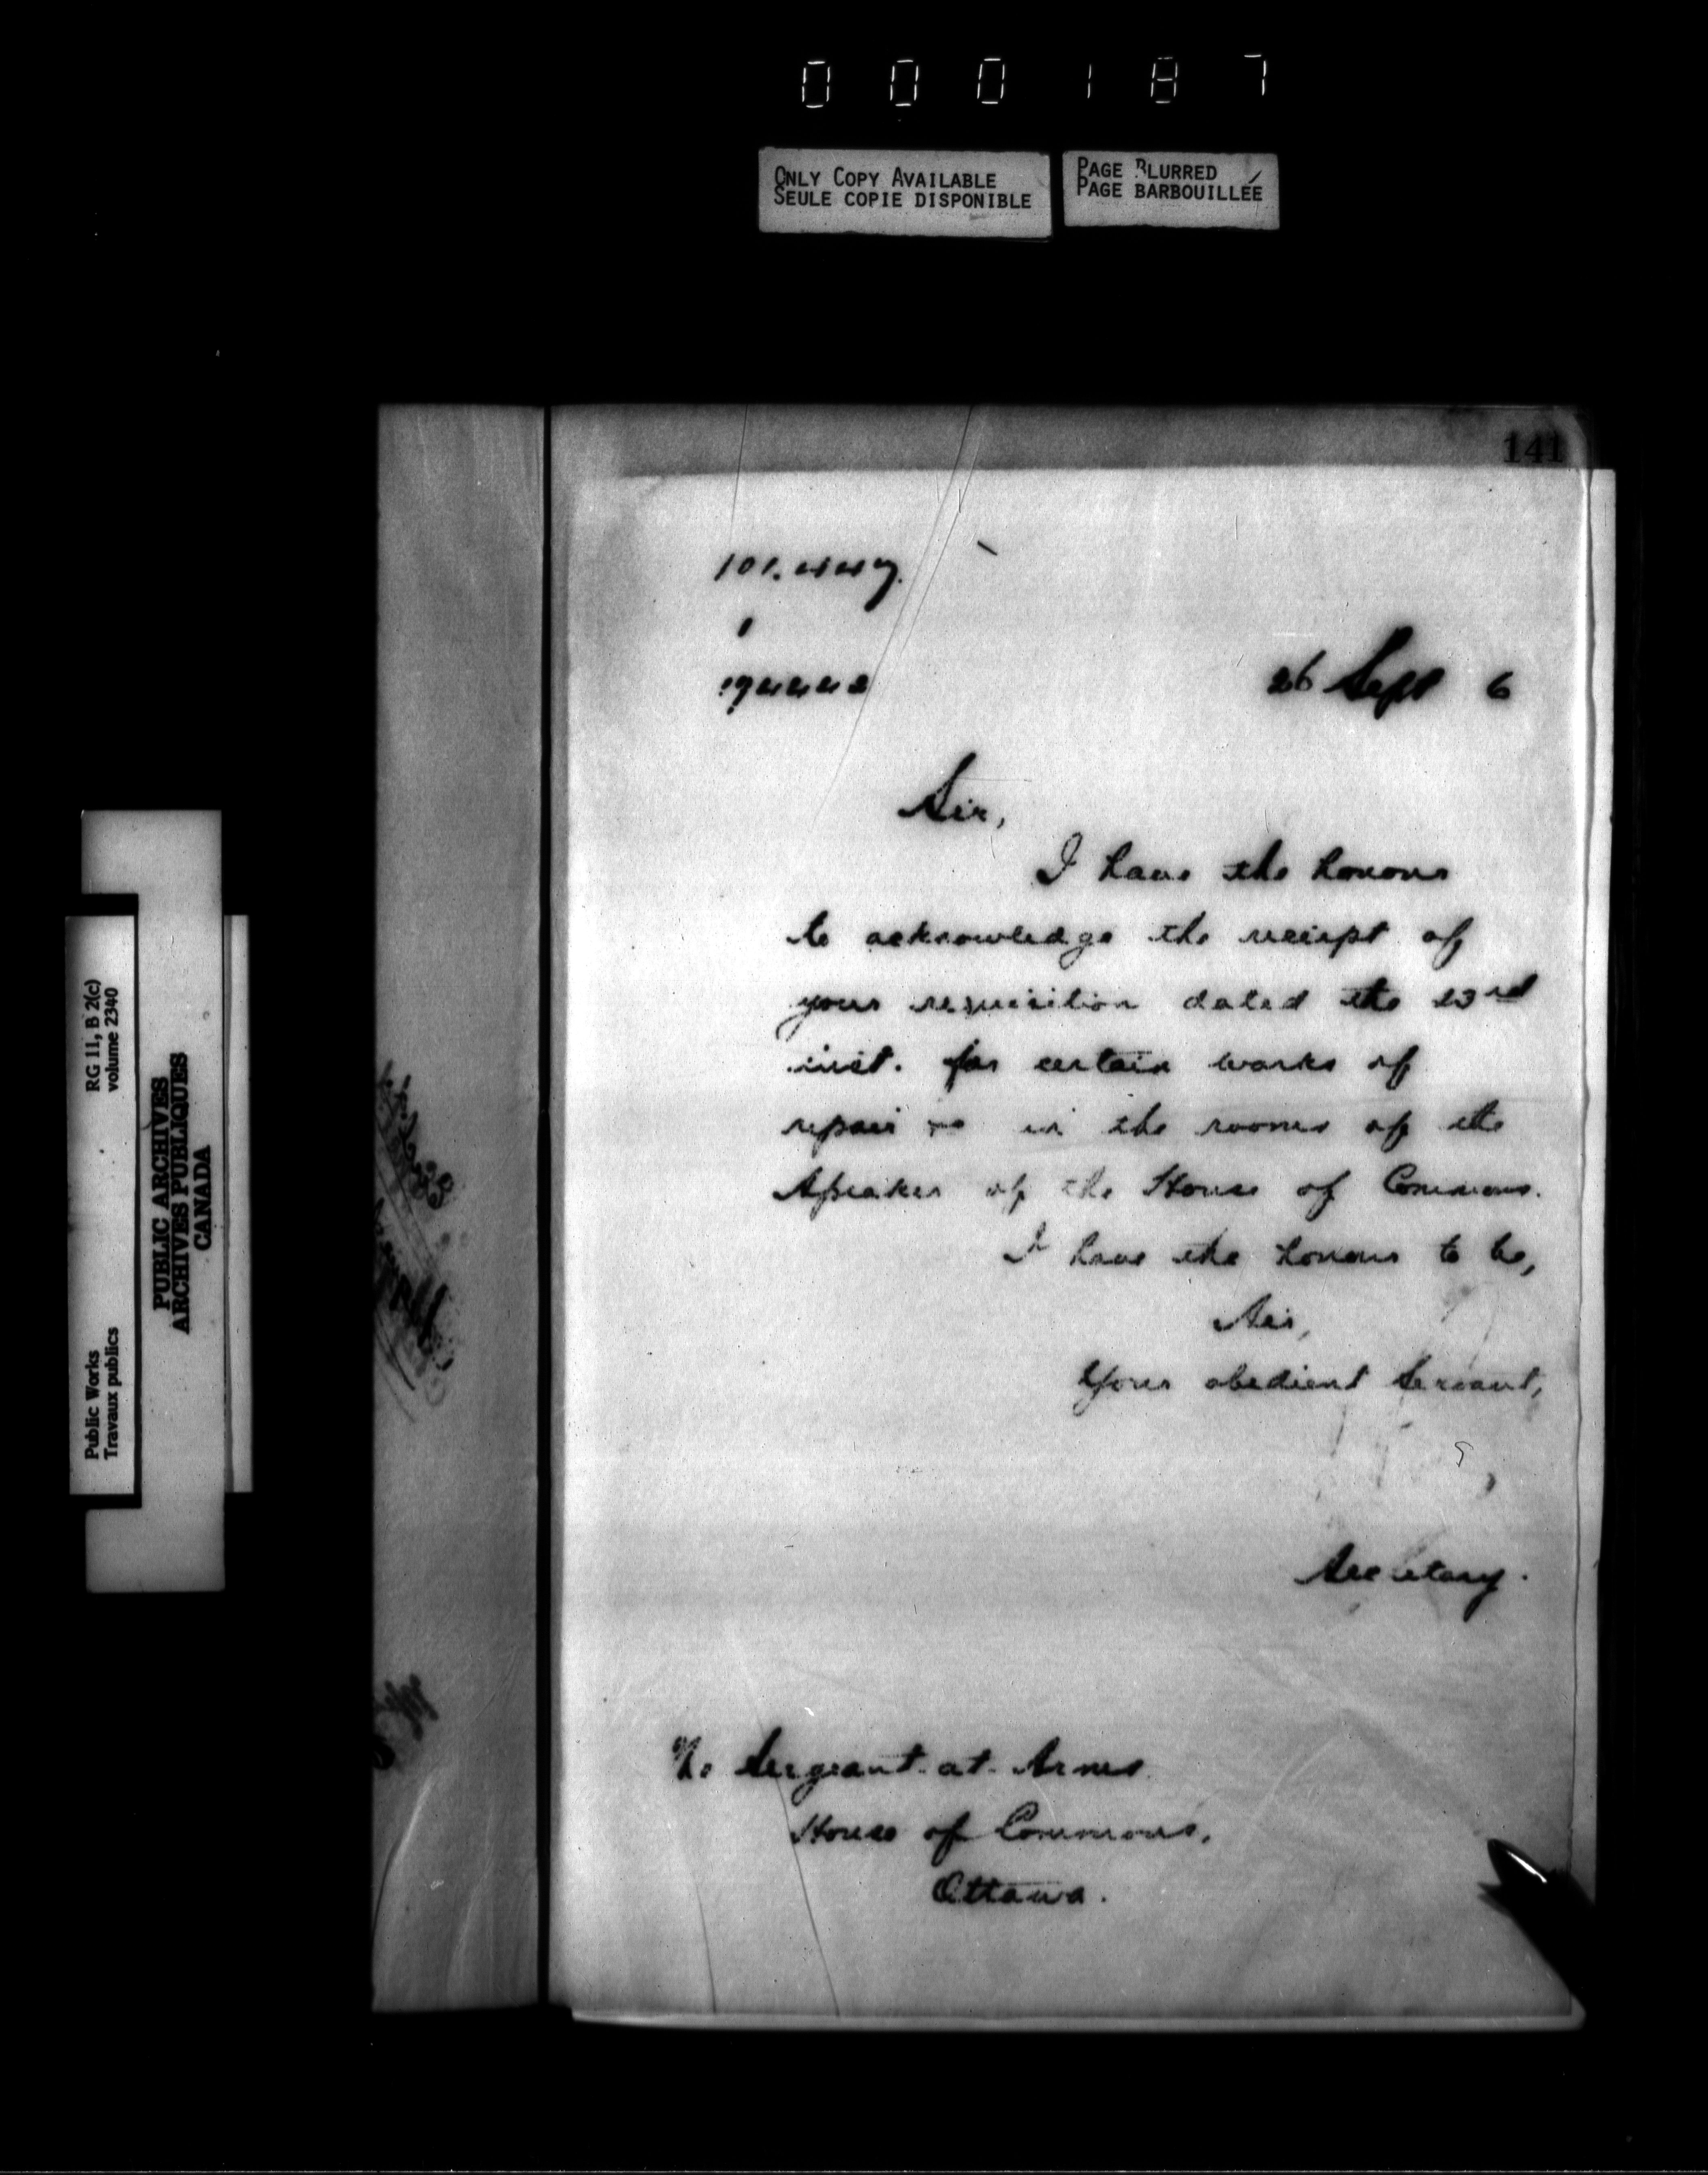 000187
ONLY COPY AVAILABLE
SEULE COPIE DISPONIBLE
PAGE BLURRED
PAGE BARBOUILLÉE
RG 11, B 2(c)
volume 2340
Public Works
Travaux publics
PUBLIC ARCHIVES
ARCHIVES PUBLIQUES
CANADA
141
26 Sept 6
Sir,
I have the honour
to acknowledge the receipt of
your requisition dated the 23rd
inst. for certain works of
repair in the rooms of the
Speaker of the House of Commons.
I have the honour to be,
Sir,
Your obedient Servant,
Secretary.
Sergeant-at-Arms
House of Commons,
Ottawa.